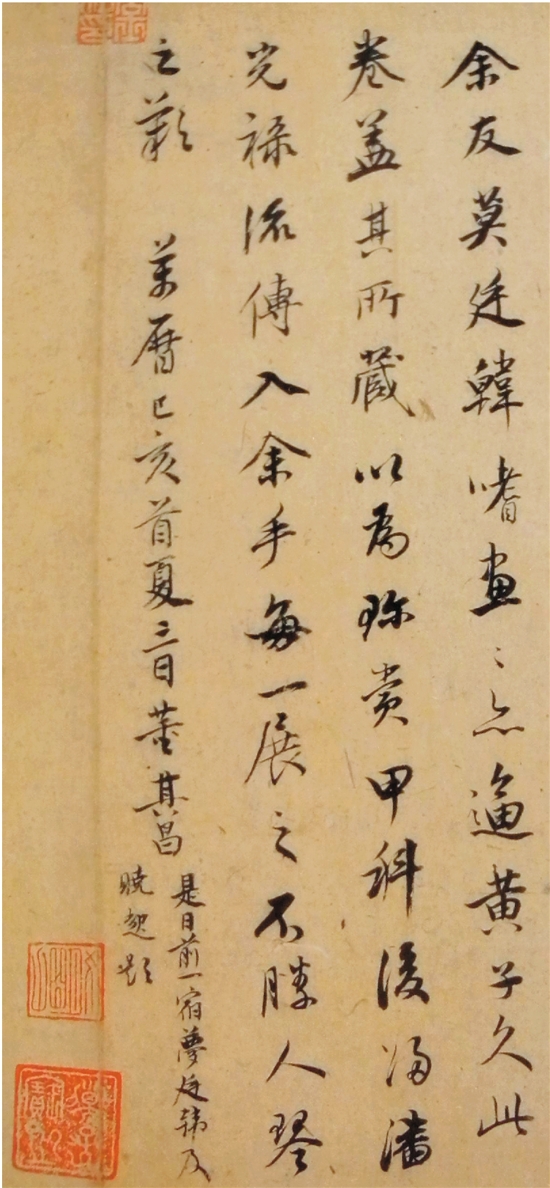 余友莫廷韓嗜畫〻亦逼黃子久此
卷蓋其所藏以為珎賞甲科後歸潘
光祿流傳入余手每一展之不勝人琴
之歎 萬曆己亥首夏三日董其昌
是日前一宿夢廷韓及
曉起題